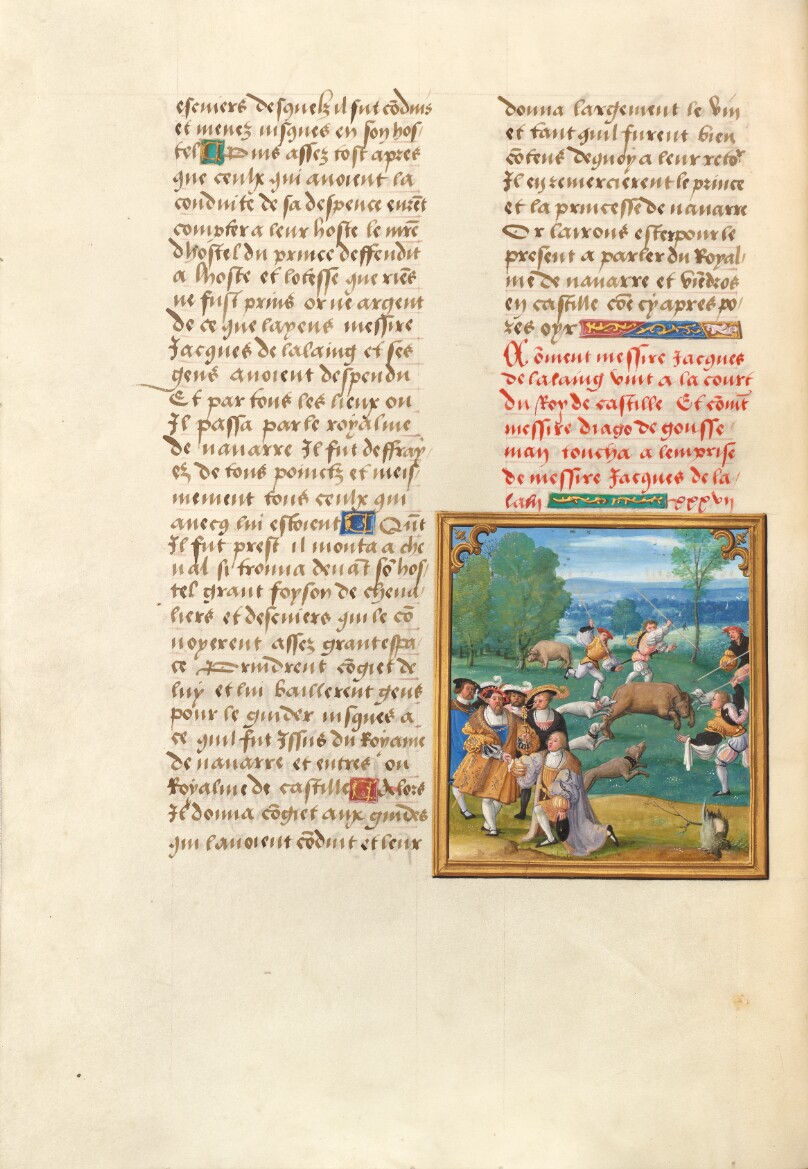 escuiers desquelz il fut cōduis
et menez iusques en son hos/
tel Puis assez tost apres
que ceulx qui auoient la
conduite de sa despence eurēt
compter a leur hoste le mrē
dhostel du prince deffendit
a lhoste et lotesse que riēs
ne fust prins or ne argent
de ce que layens messire
Jacques de lalaing et ses
gens auoient despendu
Et par tous les lieux ou
Il passa par le royalme
de nauarre Il fut deffray/
ez de tous poinctz et meis/
mement tous ceulx qui
auecq lui estoient Quāt
Il fut prest il monta a che
ual si trouua deuāt sō hos/
tel grant foyson de cheua/
liers et descuiers qui le cō
uoyerent assez grant espa/
ce Prindrent cōgiet de
luy et lui baillerent gens
pour le guider iusques a
ce quil fut Issus du Royame
de nauarre et entres ou
Royalme de castille Adelors
Il donna cōgiet aux guides
qui lauoient cōduit et leur
donna largement le vin
et tant quil furent bien
cōtens dequoy a leur retor
Il en remercierent le prince
et la princesse de nauarre
Or lairons ester pour le
present a parler du Royal/
me de nauarre et viēdrōs
en castille cōe cy apres po/
res oyr
Cōment messire Jacques
de lalaing vint a la court
du Roy de castille Et cōmēt
messire diago de gousse
man toucha a lemprise
de messire Jacques de la/
lain xxxvii